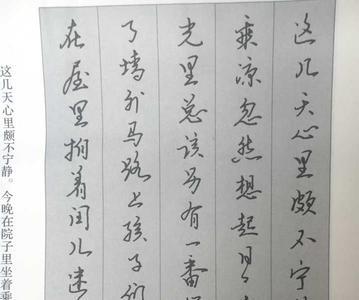 这几天心里颇不宁
乘凉忽然想起日
光里总该另有一番
了墙外马路上孩子们
在屋里拍着闰儿迷
这几天心里颇不宁静。今晚在院子里坐着乘